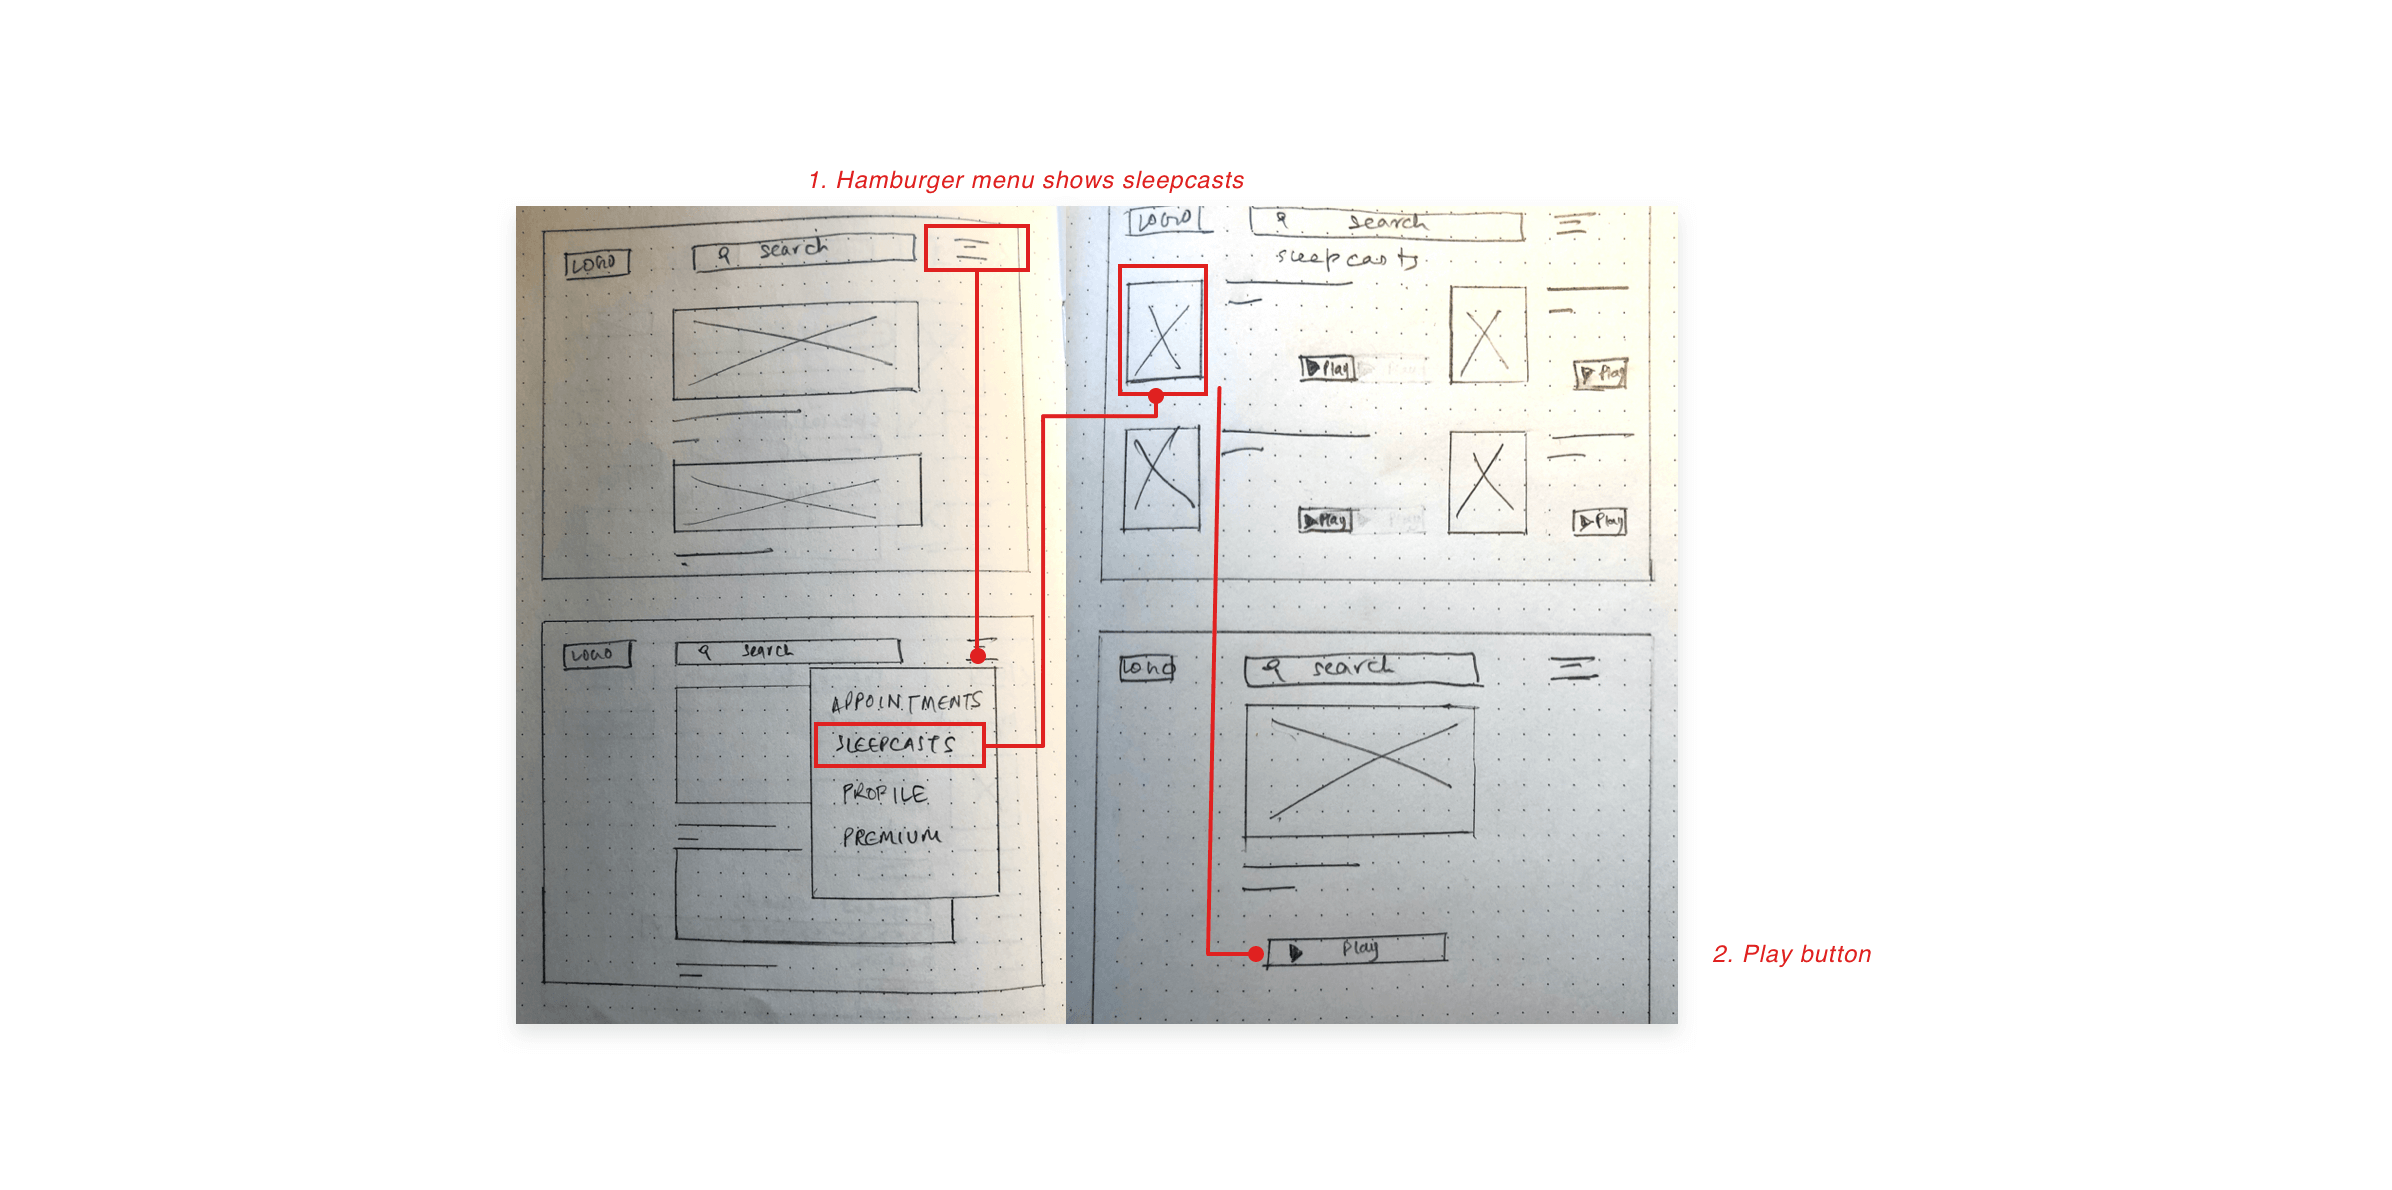 1. Hamburger menu shows sleepcasts
LOGO
search
LOGO
search
APPOINTMENTS
SLEEPCASTS
PROFILE
PREMIUM
LOGO
search
sleepcasts
Play
Play
Play
Play
LOGO
search
Play
2. Play button